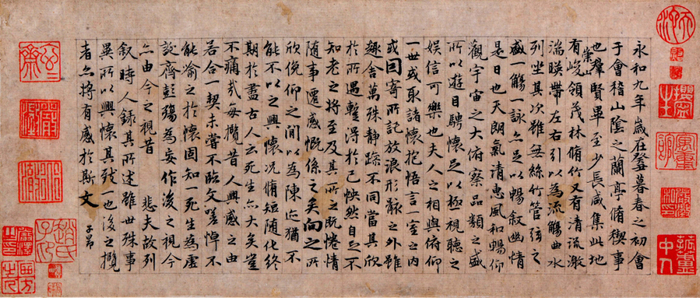 永和九年歲在癸丑暮春之初會
于會稽山陰之蘭亭脩稧事
也羣賢畢至少長咸集此地
有崇峻領茂林脩竹又有清流激
湍暎帶左右引以為流觴曲水
列坐其次雖無絲竹管弦之
盛一觴一詠亦足以暢敘幽情
是日也天朗氣清惠風和暢仰
觀宇宙之大俯察品類之盛
所以遊目騁懷足以極視聽之
娛信可樂也夫人之相與俯仰
一世或取諸懷抱悟言一室之內
或因寄所託放浪形骸之外雖
趣舍萬殊靜躁不同當其欣
於所遇暫得於己怏然自足不
知老之將至及其所之既惓情
隨事遷感慨係之矣向之所
欣俛仰之間以為陳迹猶不
能不以之興懷況脩短隨化終
期於盡古人云死生亦大矣豈
不痛哉每攬昔人興感之由
若合一契未嘗不臨文嗟悼不
能喻之於懷固知一死生為虛
誕齊彭殤為妄作後之視今
亦由今之視昔 悲夫故列
敘時人錄其所述雖世殊事
異所以興懷其致一也後之攬
者亦將有感於斯文
子昂
趙氏子昂